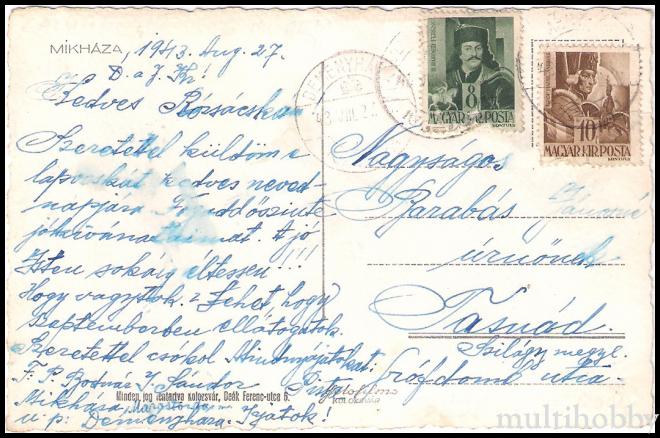 MIKHÁZA 1943. Aug. 27.
D. a J. Kr!
Kedves Rózsácska!
Szeretettel küldöm e
lapocskát kedves neved-
napjára. Fogadd őszinte
jókívánataimat. A jó
Isten sokáig éltessen!!!
Hogy vagytok? Lehet, hogy
Szeptemberben ellátogatok.
Szeretettel csókol Mindnyájatokat:
F. P. Bodnár J. Sándor
Mikháza, Marostorda m.
u p: Demeryháza. Írjatok!
Minden jog fentartva kolozsvár, Deák Ferenc-utca 6.
KOLOZSVÁR
DEMÉNYHÁZA
43 VIII. 2
8
MAGYAR KIR. POSTA
10
MAGYAR KIR. POSTA
Nagyságos
Barabás Jánosné
úrnőnek
Tasnád.
Szilágy megye.
utca
multihobby